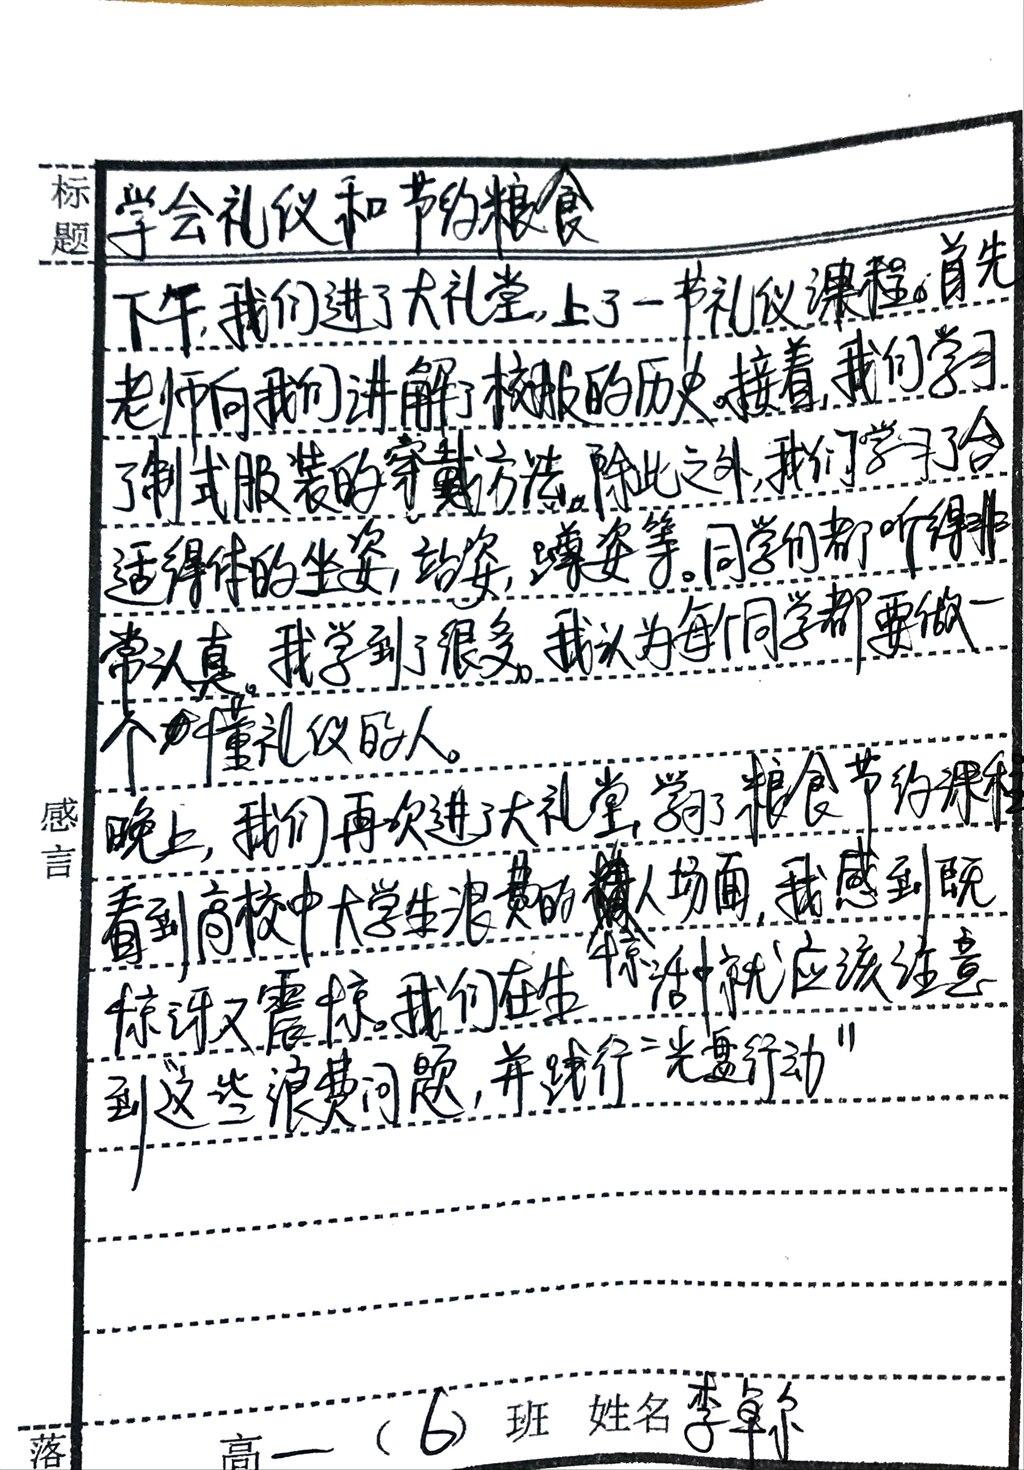 标题
学会礼仪和节约粮食
下午,我们进了大礼堂,上了一节礼仪课程。首先
老师向我们讲解了校服的历史。接着,我们学习
了制式服装的穿戴方法。除此之外,我们学习了合
适得体的坐姿,站姿,蹲姿等。同学们都听得非
常认真。我学到了很多。我认为每个同学都要做一
个懂礼仪的人。
感言
晚上,我们再次进了大礼堂,学习了粮食节约课程
看到高校中大学生浪费的惊人场面,我感到既
惊讶又震惊。我们在生活中就应该注意
到这些浪费问题,并践行“光盘行动”
落
高一(6)班 姓名 李卓尔